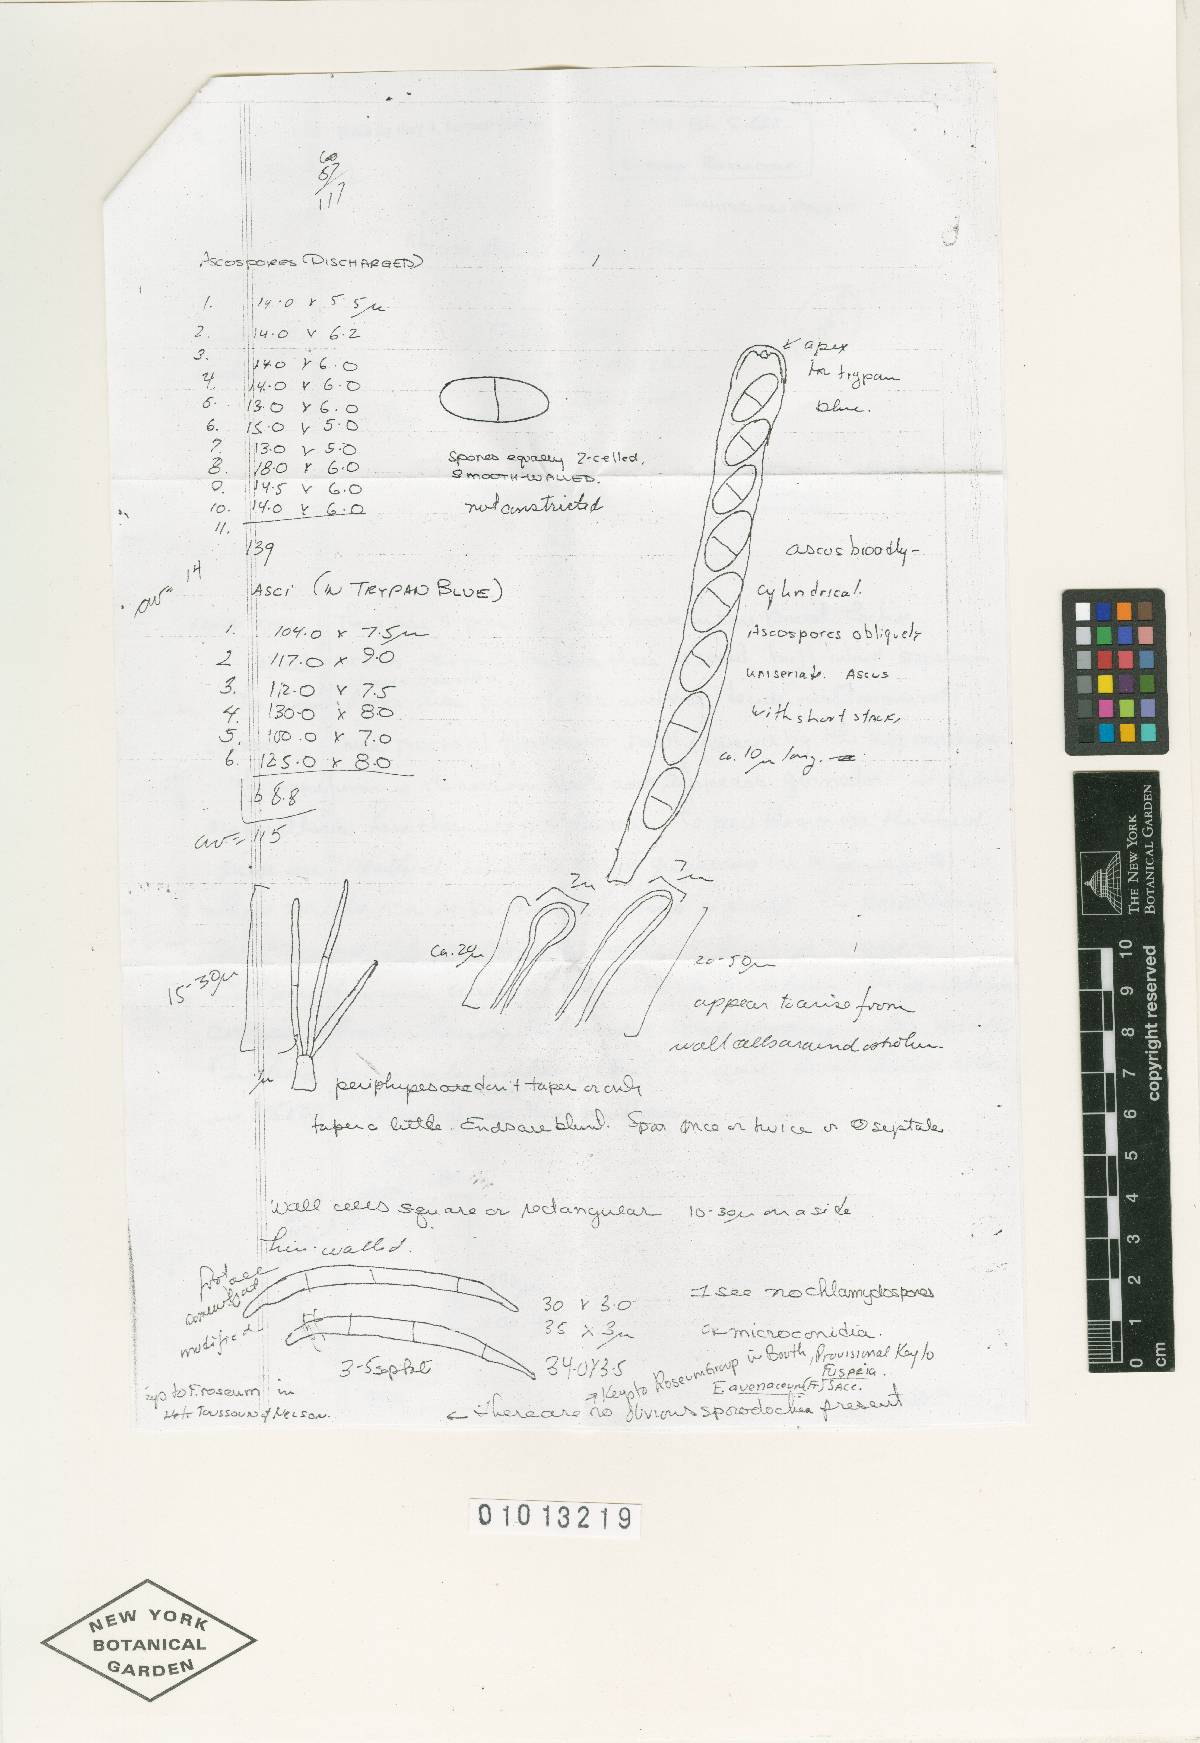 60
57
117
ASCOSPORES (DISCHARGED)
1. 14.0 x 5.5µ
2. 14.0 x 6.2
3. 14.0 x 6.0
4. 14.0 x 6.0
5. 13.0 x 6.0
6. 15.0 x 5.0
7. 13.0 x 5.0
8. 18.0 x 6.0
9. 14.5 x 6.0
10. 14.0 x 6.0
11.
139
av= 14
Spores equally 2-celled,
SMOOTH-WALLED.
not constricted
apex
in trypan
blue.
ascus broadly-
cylindrical.
Ascospores obliquely
uniseriate. Ascus
with short stalk,
ca. 10µ long.
ASCI (IN TRYPAN BLUE)
1. 104.0 x 7.5µ
2 117.0 x 9.0
3. 112.0 x 7.5
4. 130.0 x 8.0
5. 100.0 x 7.0
6. 125.0 x 8.0
68.8
av= 115
15-30µ
ca. 20µ
2µ
7µ
20-50µ
appear to arise from
wall cells around ostiole.
periphyses don't taper or only
taper a little. Ends are blunt. once or twice or 0 septate
Wall cells square or rectangular 10-30µ on a side
thin-walled.
foot cell
somewhat
modified
30 x 3.0
35 x 3µ
34.0 x 3.5
3-5 septate
I see no chlamydospores
or microconidia.
→ Keys to Roseum Group in Booth, Provisional Key to
Fusaria.
F. avenaceum (Fr.) Sacc.
← there are no obvious sporodochia present
keys to F. roseum in
Toussoun & Nelson.
01013219
NEW YORK
BOTANICAL
GARDEN
THE NEW YORK
BOTANICAL GARDEN
copyright reserved
0 1 2 3 4 5 6 7 8 9 10
cm